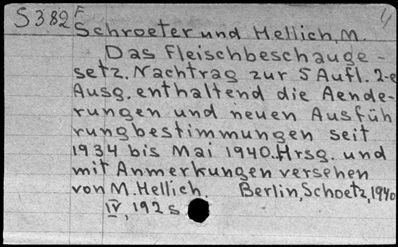 S382 F
Schroeter und Hellich, M.
Das Fleischbeschauge-
setz. Nachtrag zur 5 Aufl. 2-e
Ausg. enthaltend die Aende-
rungen und neuen Ausfüh
rungbestimmungen seit
1934 bis Mai 1940. Hrsg. und
mit Anmerkungen versehen
von M. Hellich. Berlin, Schoetz, 1940
IV, 192 s